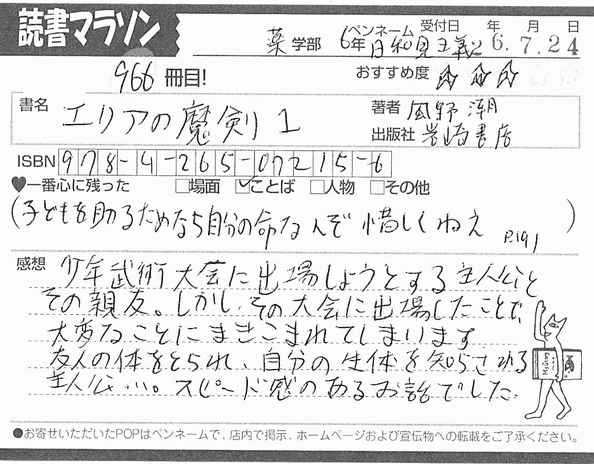 読書マラソン
薬学部 6年 ペンネーム 日和見主義 受付日 26年7月24日
966冊目! おすすめ度 ☆☆☆
書名 エリアの魔剣1
著者 風野潮
出版社 岩崎書店
ISBN 978-4-265-07215-6
♥一番心に残った □場面 ☑ことば □人物 □その他
(子どもを助るためなら自分の命なんぞ惜しくねえ P.191)
感想 少年武術大会に出場しようとする主人公と
その親友。しかし、その大会に出場したことで、
大変なことにまきこまれてしまいます
友人の体をとられ、自分の生体を知らされる
主人公…。スピード感のあるお話でした
●お寄せいただいたPOPはペンネームで、店内で掲示、ホームページおよび宣伝物への転載をご了承ください。